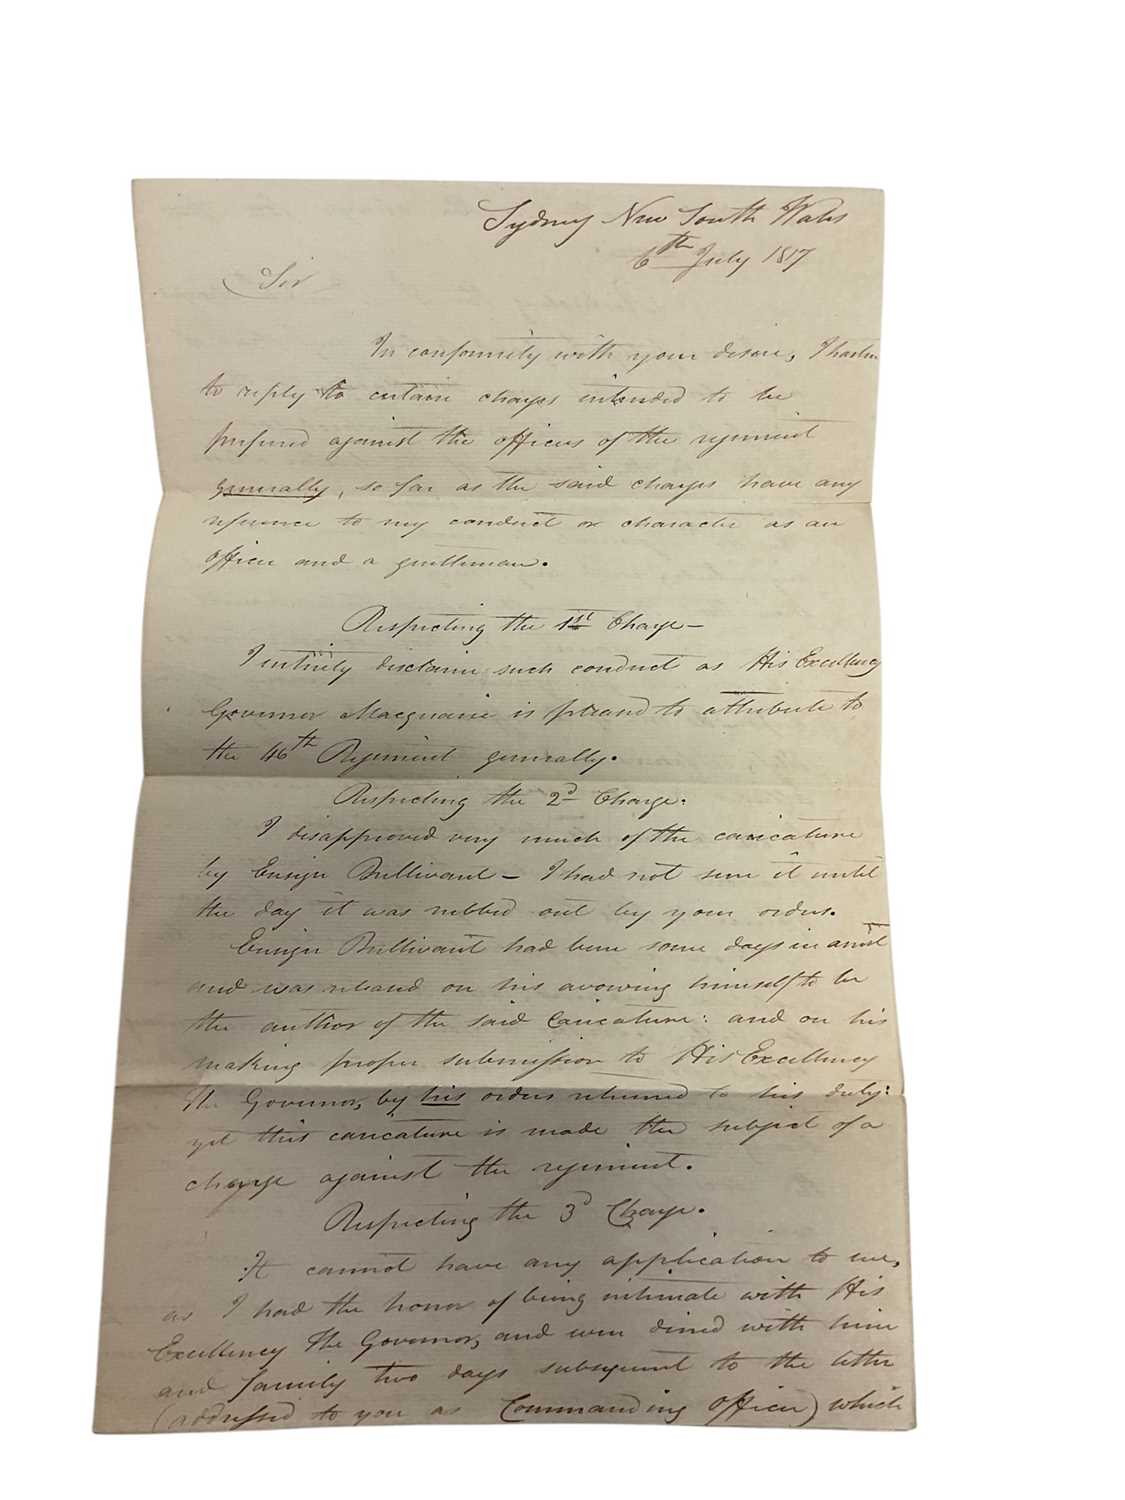 Sydney New South Wales
6th July 1817
Sir
In conformity with your desire, I hasten
to reply to certain charges intended to be
prefered against the officers of the regiment
generally, so far as the said charges have any
reference to my conduct or character as an
officer and a gentleman.
Respecting the 1st Charge –
I entirely disclaim such conduct as His Excellency
Governor Macquarie is pleased to attribute to
the 46th Regiment generally.
Respecting the 2d Charge.
I disapproved very much of the caricature
by Ensign Bullivant – I had not seen it until
the day it was rubbed out by your orders.
Ensign Bullivant had been some days in arrest
and was released on his avowing himself to be
the author of the said Caricature: and on his
making proper submission to His Excellency
The Governor, by his orders returned to his duty:
yet this caricature is made the subject of a
charge against the regiment.
Respecting the 3d Charge.
It cannot have any application to me,
as I had the honor of being intimate with His
Excellency The Governor, and even dined with him
and family two days subsequent to the letter
(addressed to you as Commanding Officer) which